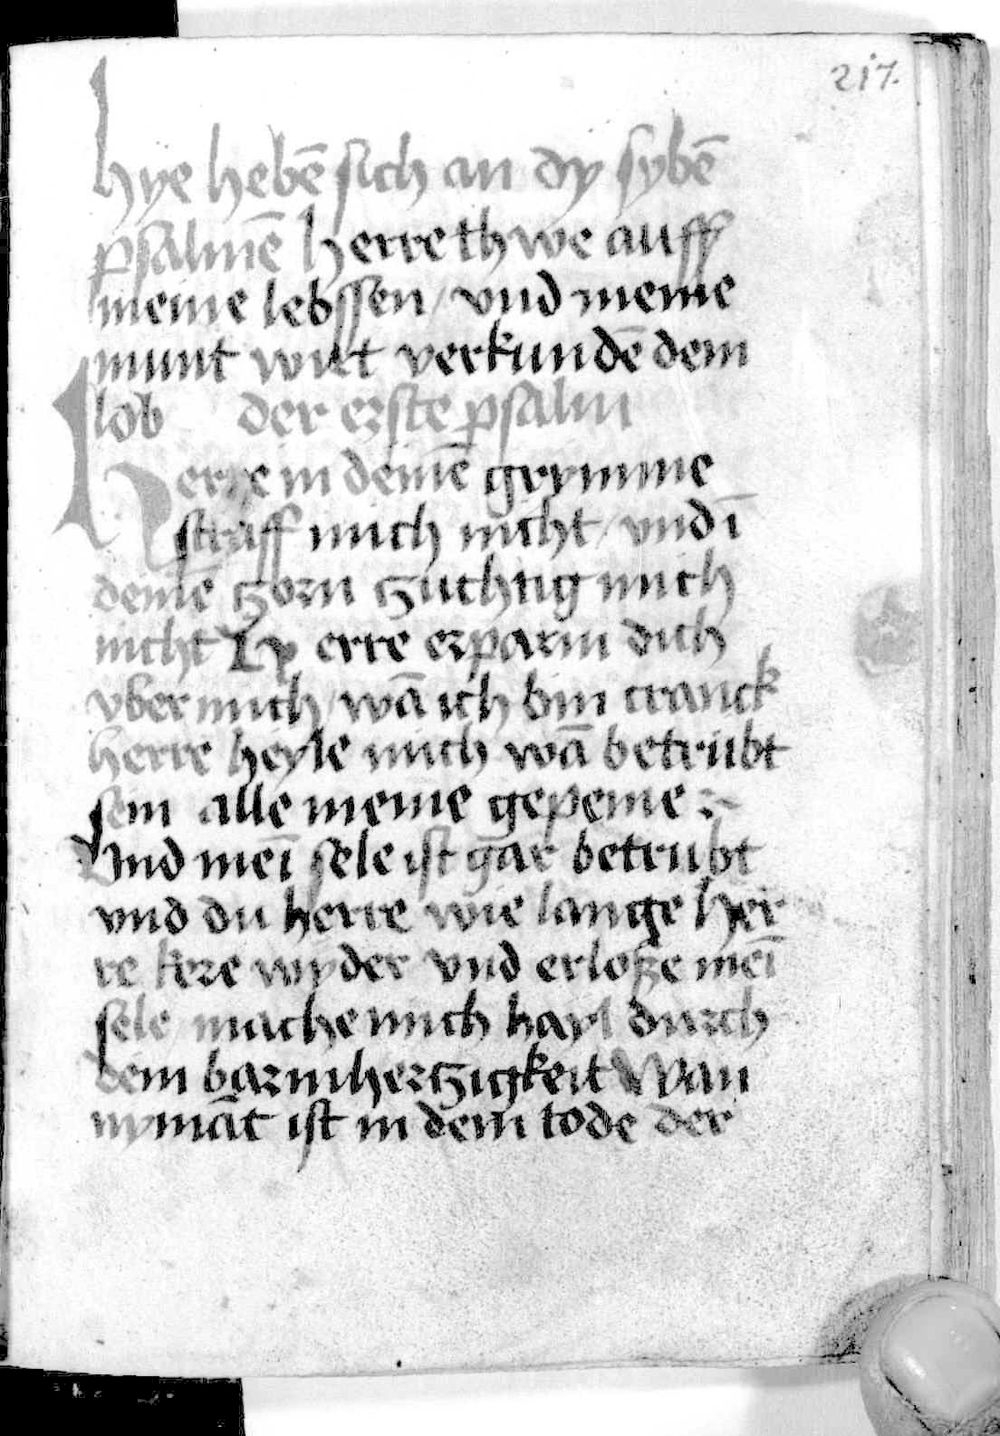 217.
hye hebē sich an dy sybē
psalmē herre thwe auff
meine lebssen / vnd meine
munt wirt verkundē dein
lob der erste psalm
Herre in deinē grymme
straff mich nicht / vnd ī
deinē zorn zuchtig mich
nicht Herre erparm dich
vber mich / wā ich bin cranck
herre heyle mich wā betrubt
sein alle meine gepeine :~
Vnd meī sele ist gar betrubt
vnd du herre wie lange her
re kere wyder vnd erlosze meī
sele / mache mich hayl durch
dein barmhertzigkeit Wan
nymāt ist in dem tode der